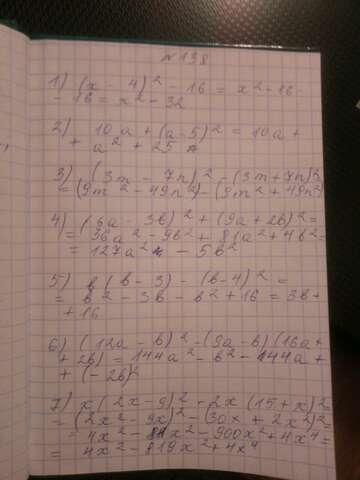 № 138
1) (x - 4)² - 16 = x² - 16 -
- 16 = x² - 32
2) 10a + (a - 5)² = 10a +
+ a² + 25
3) (3m - 7n)² - (3m + 7n)² =
= (9m² - 49n²) - (9m² + 49n²)
4) (6a - 3b)² + (9a + 2b)² =
= 36a² - 9b² + 81a² + 4b² =
= 127a² - 5b²
5) b(b - 3) - (b - 4)² =
= b² - 3b - b² + 16 = 3b +
+ 16
6) (12a - b)² - (9a - b)(16a +
+ 2b) = 144a² - b² - 144a +
+ (-2b)²
7) x(2x - 9)² - 2x(15 + x)² =
= (2x² - 9x)² - (30x + 2x²)² =
= 4x² - 81x² - 900x² + 4x⁴ =
= 4x² - 819x² + 4x⁴